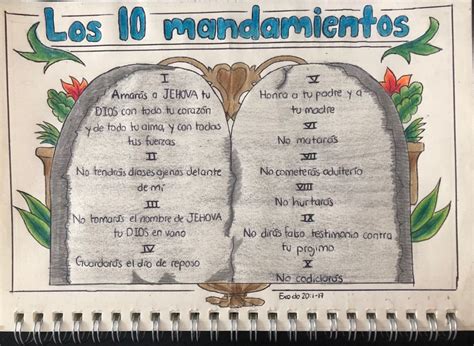 Los 10 mandamientos
I
Amarás a JEHOVA tu
DIOS con todo tu corazón
y de todo tu alma, y con todas
tus fuerzas
II
No tendrás dioses ajenos delante
de mi
III
No tomarás el nombre de JEHOVA
tu DIOS en vano
IV
Guardarás el día de reposo
V
Honra a tu padre y a
tu madre
VI
No matarás
VII
No cometerás adulterio
VIII
No hurtarás
IX
No dirás falso testimonio contra
tu projimo
X
No codiciarás
Exodo 20:1-17